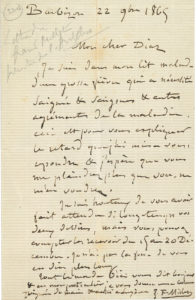 Barbizon 22 9bre 1865
Mon cher Diaz
Je suis dans mon lit malade
d'une grosse fièvre qui a nécessité
saignée & sangsues & autres
agréments de la maladie.
ceci est pour vous expliquer
le retard que j'ai mis à vous
répondre & j'espère que vous
me plaindrez plus que vous ne
m'en voudrez
Je suis honteux de vous avoir
fait attendre si longtemps vos
deux dessins, mais vous pouvez
compter les recevoir du 15 au 20 Dé-
cembre.
en dire plus long
tout le monde bien vous dit bonjour
J. F. Millet